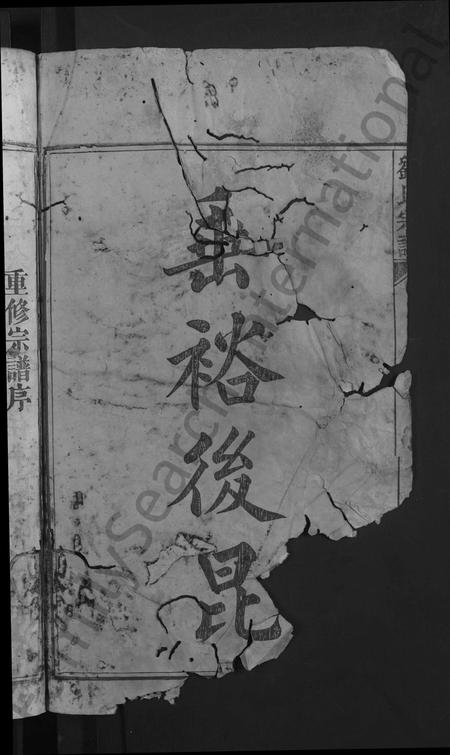 劉氏宗譜
垂裕後昆
重修宗譜序
FamilySearch International